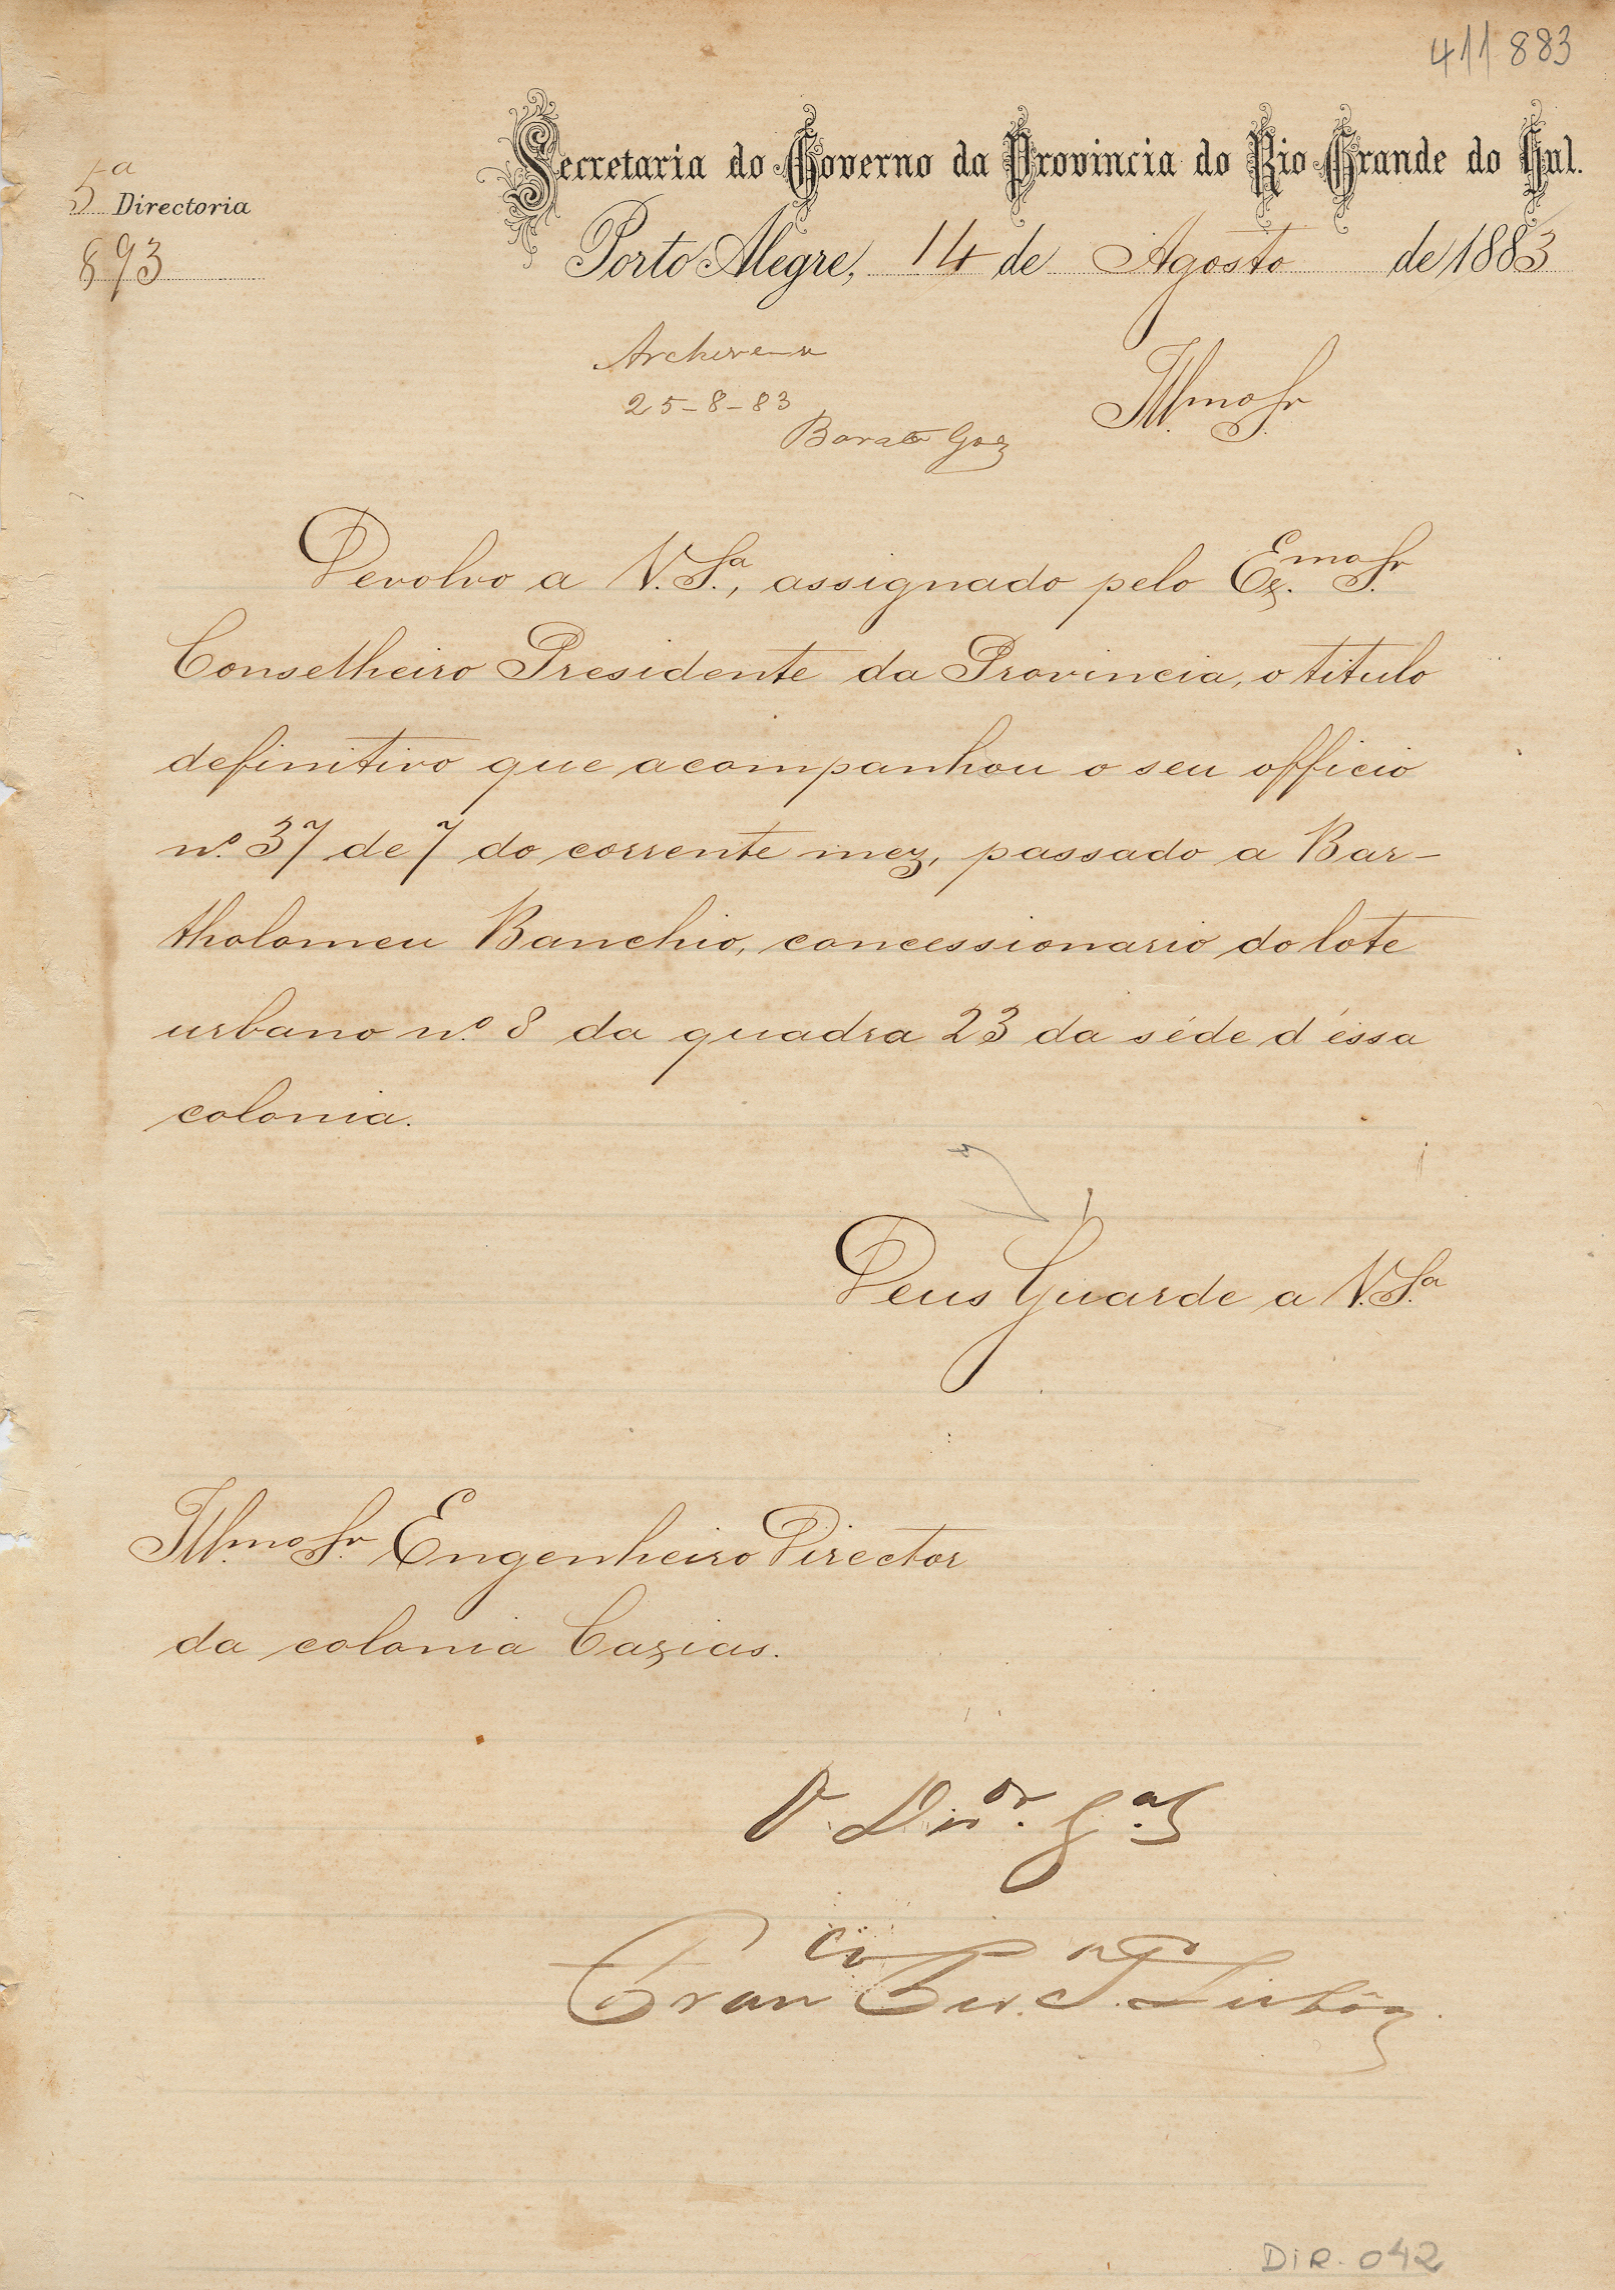 411883
Secretaria do Governo da Provincia do Rio Grande do Sul.
5ª Directoria
893
Porto Alegre, 14 de Agosto de 1883
Archive-se
25-8-83
Barata Goes
Illmo Sr.
Devolvo a V. Sª., assignado pelo Exmo. Sr.
Conselheiro Presidente da Provincia, o titulo
definitivo que acompanhou o seu officio
nº. 37 de 7 do corrente mez, passado a Bar-
tholomeu Banchio, concessionario do lote
urbano nº. 8 da quadra 23 da séde d'éssa
colonia.
Deus Guarde a V. Sª.
Illmo. Sr. Engenheiro Director
da colonia Caxias.
O Dir.or G.al
DIR. 042